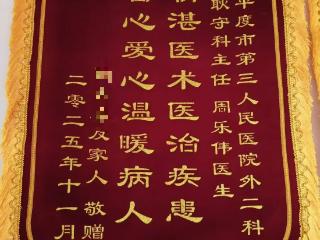 平度市第三人民医院外二科
耿守科主任 周乐伟医生
湛医术医治疾患
心爱心温暖病人
及家人 敬赠
二零二五年十一月